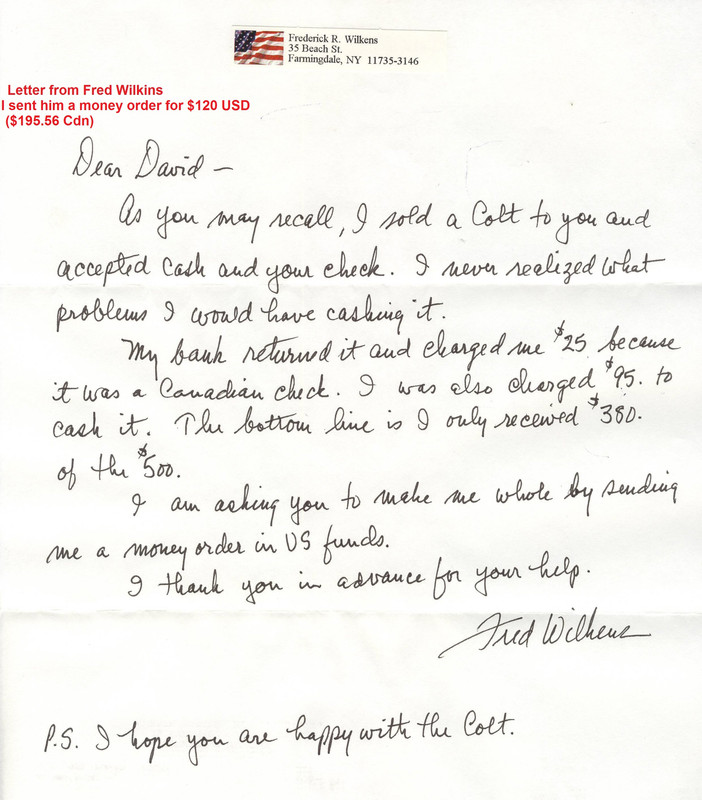 Frederick R. Wilkens
35 Beach St.
Farmingdale, NY 11735-3146
Letter from Fred Wilkins
I sent him a money order for $120 USD
($195.56 Cdn)
Dear David –
As you may recall, I sold a Colt to you and
accepted cash and your check. I never realized what
problems I would have cashing it.
My bank returned it and charged me $25 because
it was a Canadian check. I was also charged $95. to
cash it. The bottom line is I only received $380.
of the $500.
I am asking you to make me whole by sending
me a money order in US funds.
I thank you in advance for your help.
Fred Wilkens
P.S. I hope you are happy with the Colt.